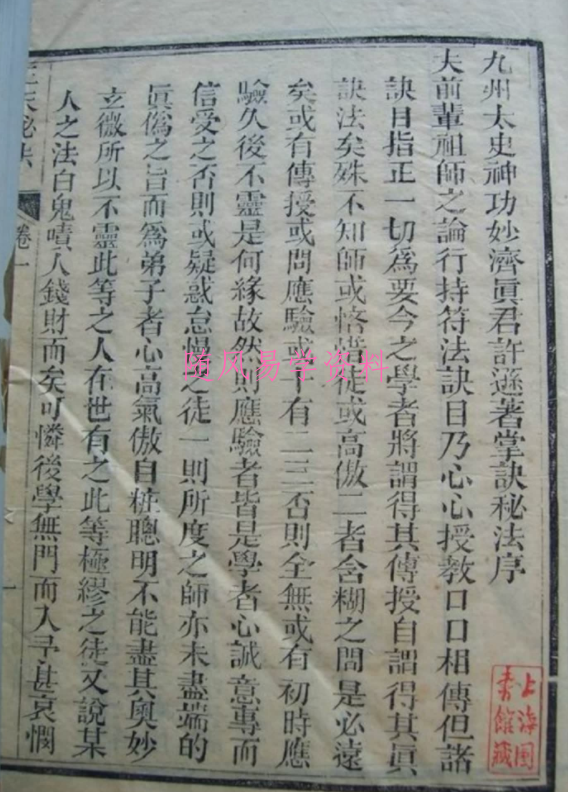 九州太史神功妙濟眞君許遜著掌訣秘法序
夫前輩祖師之論行持符法訣目乃心心授敎口口相傳但諸
訣目指正一切爲要今之學者將謂得其傳授自謂得其眞
訣法矣殊不知師或悋惜徒或高傲二者含糊之間是必遠
矣或有傳授或問應驗或十有二三否則全無或有初時應
驗久後不靈是何緣故然則應驗者皆是學者心誠意專而
信受之否則或疑惑怠慢之徒一則所度之師亦未盡端的
眞僞之旨而爲弟子者心高氣傲自粧聰明不能盡其奧妙
立微所以不靈此等之人在世有之此等極繆之徒又說某
人之法白鬼嘖人錢財而矣可憐後學無門而入予甚哀憫
秘法
卷一
一
上海圖
書館藏
随风易学资料